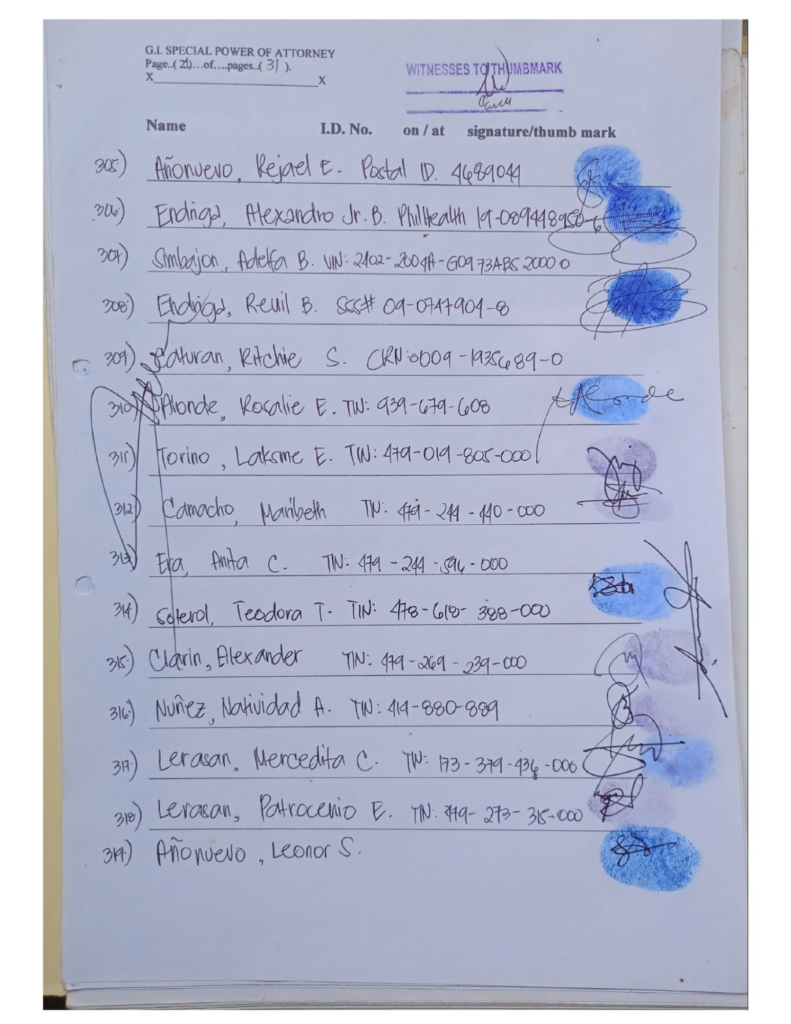 G.I. SPECIAL POWER OF ATTORNEY
Page..( 21)...of....pages..( 31 ).
X____________________________X
WITNESSES TO THUMBMARK
Name I.D. No. on / at signature/thumb mark
305) Añonuevo, Rejael E. Postal ID. 4689044
306) Endrigo, Alexandro Jr. B. PhilHealth 19-089448958-6
307) Simbajon, Adelfa B. VIN: 2402-2004A-G0973ABS20000
308) Endrigo, Reuil B. SSS# 09-0747904-8
309) Saturan, Ritchie S. CRN:0009-1935689-0
310) Alonde, Rosalie E. TIN: 939-679-608
311) Torino, Laksme E. TIN: 479-019-805-000
312) Camacho, Maribeth TIN: 479-244-440-000
313) Era, Anita C. TIN: 479-244-596-000
314) Soterol, Teodora T. TIN: 478-618-388-000
315) Clarin, Alexander TIN: 479-269-239-000
316) Nuñez, Natividad A. TIN: 414-880-889
317) Lerasan, Mercedita C. TIN: 173-379-436-000
318) Lerasan, Patrocenio E. TIN: 479-273-315-000
319) Añonuevo, Leonor S.